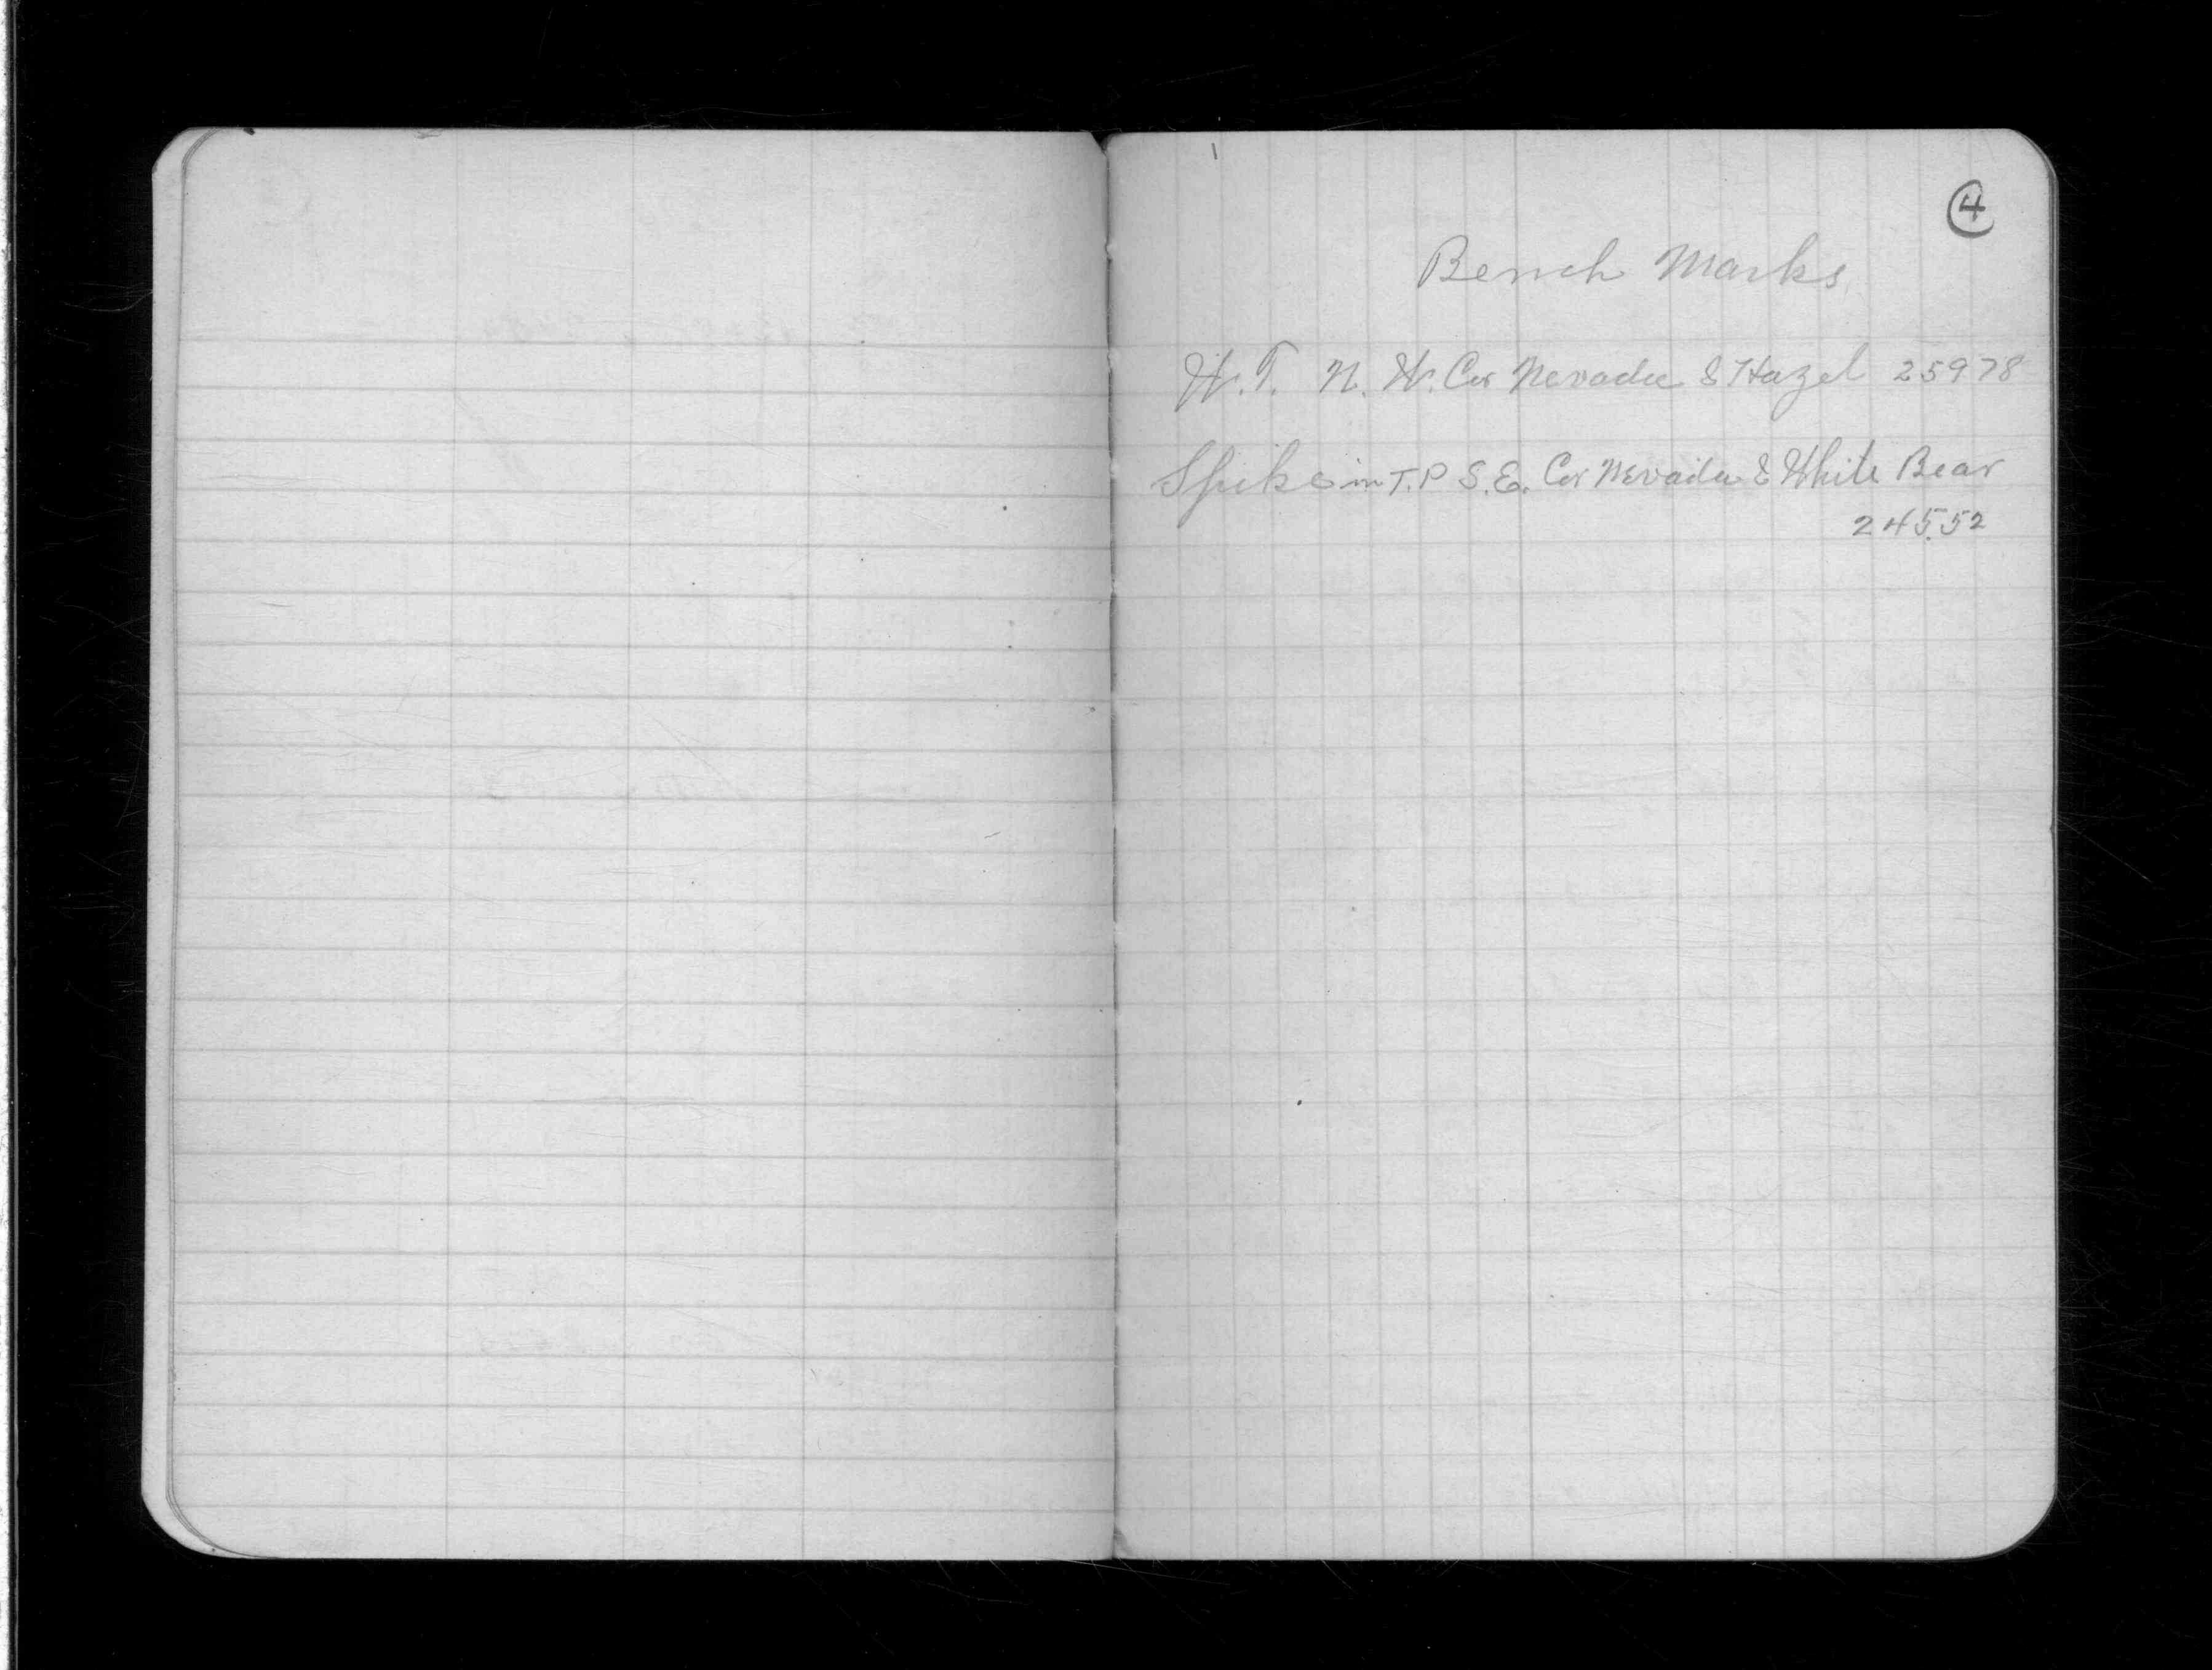 4
Bench Marks
W.T. N. W. Cor Nevada & Hazel 25978
Spike in T.P S.E. Cor Nevada & White Bear
245.52